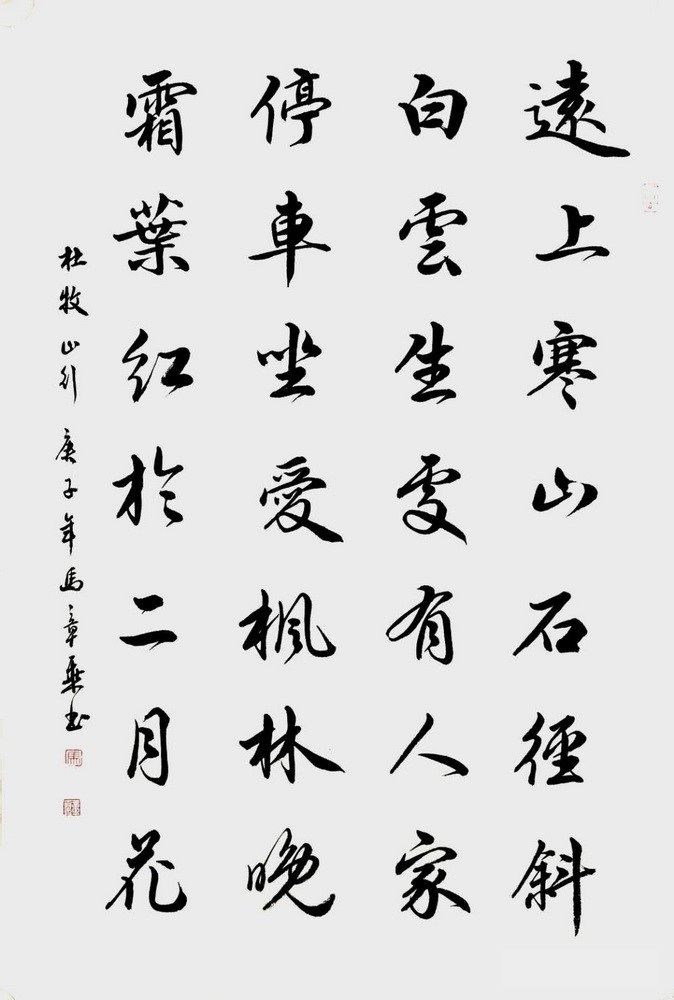 遠上寒山石徑斜
白雲生處有人家
停車坐愛楓林晚
霜葉紅於二月花
杜牧山行 庚子年馬章乘書